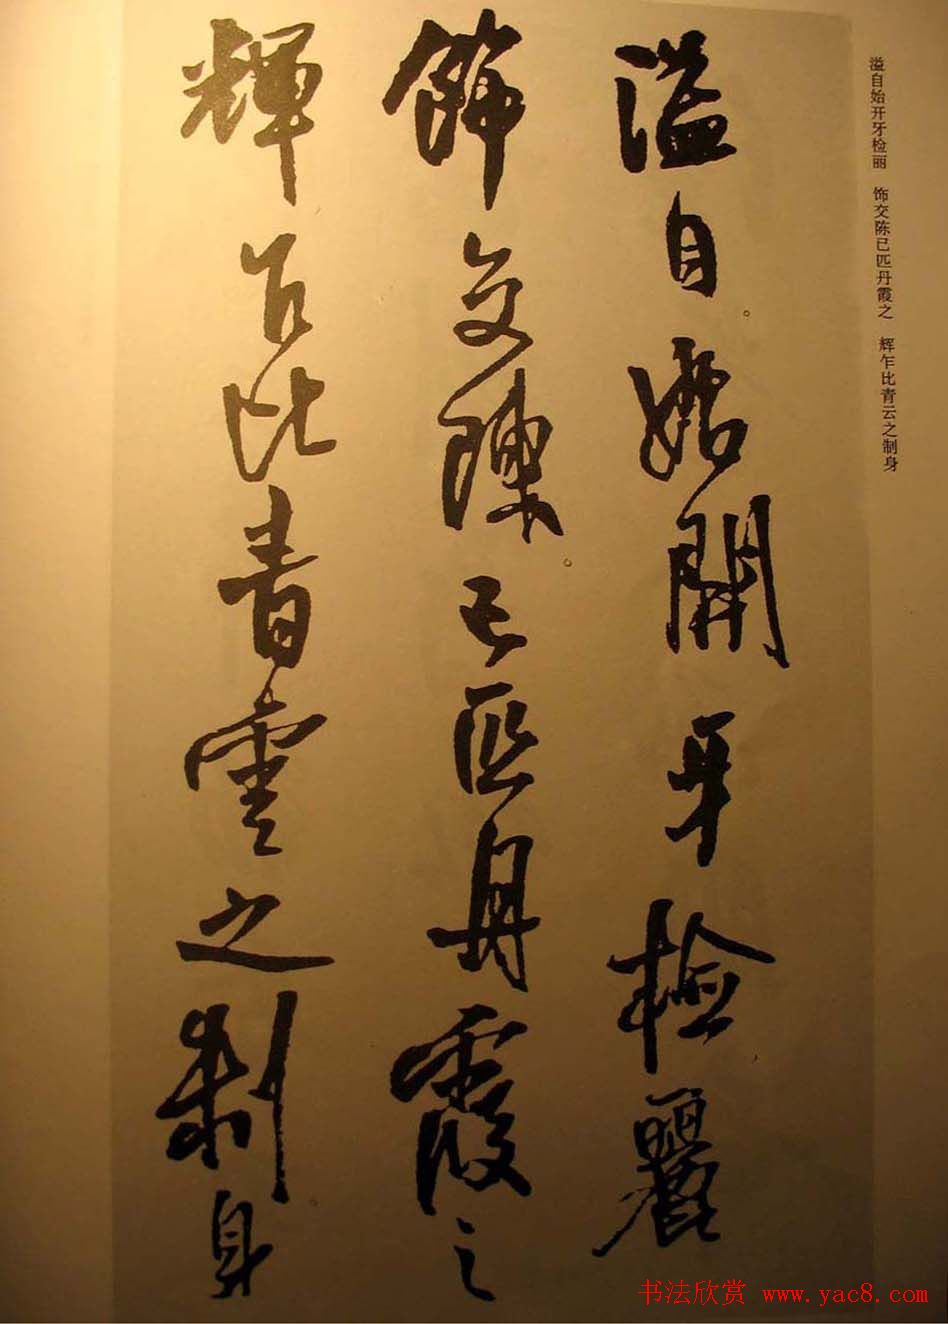 溢自始開牙檢麗
飾交陳已匹丹霞之
輝乍比青雲之制身
溢自始开牙检丽 饰交陈已匹丹霞之 辉乍比青云之制身
书法欣赏 www.yac8.com